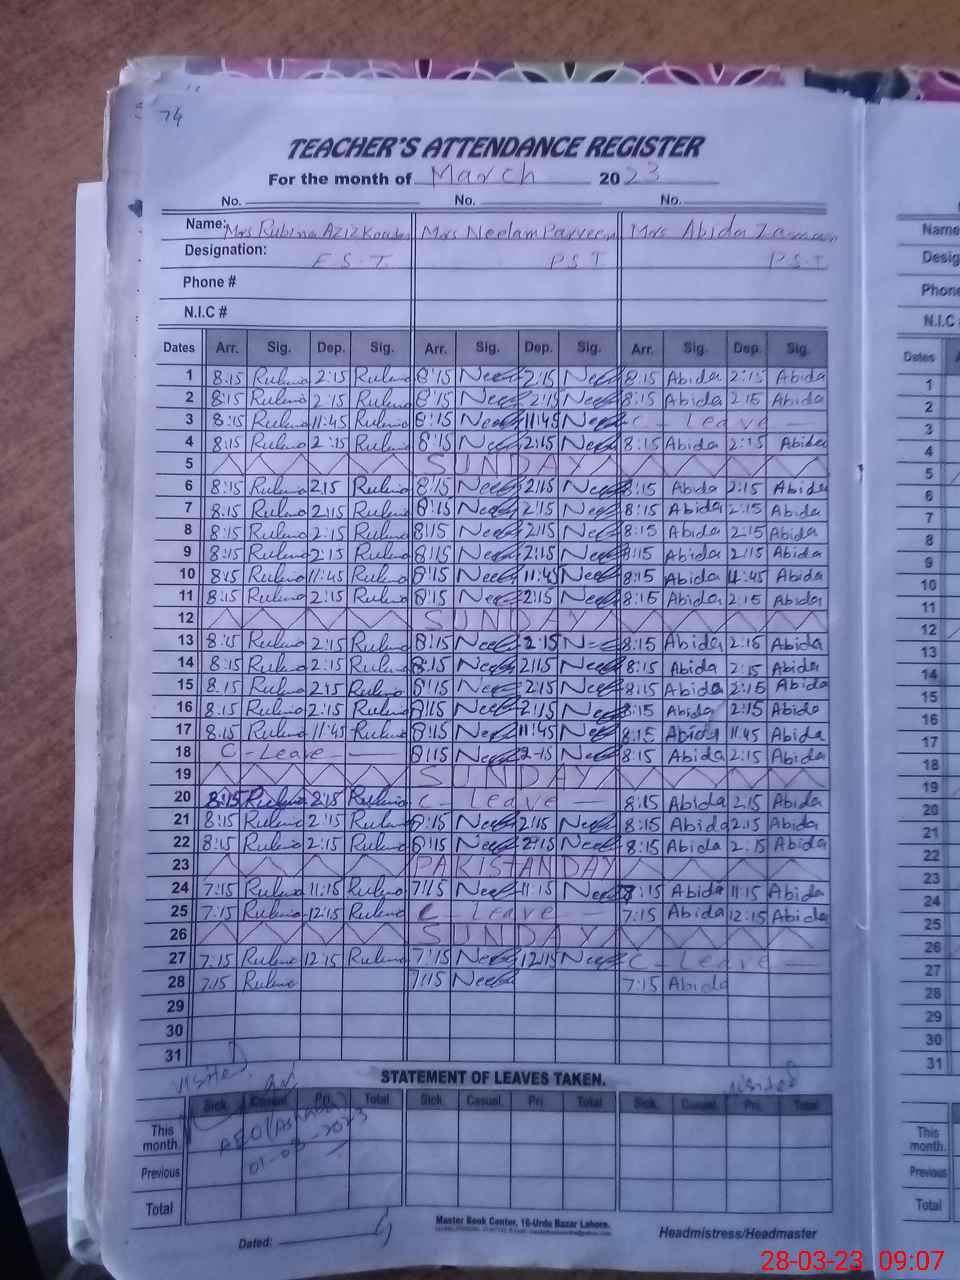 74
TEACHER'S ATTENDANCE REGISTER
For the month of March 2023
No. No. No.
Name: Mrs Rubina Aziz Mrs Neelam Parveen Mrs Abida
Designation: E.S.T. P.S.T P.S.T
Phone #
N.I.C #
Dates Arr. Sig. Dep. Sig. Arr. Sig. Dep. Sig. Arr. Sig. Dep. Sig.
1 8:15 Rubina 2:15 Rubina 8:15 Neel 2:15 Neel 8:15 Abida 2:15 Abida
2 8:15 Rubina 2:15 Rubina 8:15 Neel 2:15 Neel 8:15 Abida 2:15 Abida
3 8:15 Rubina 11:45 Rubina 8:15 Neel 11:45 Neel C - Leave -
4 8:15 Rubina 2:15 Rubina 8:15 Neel 2:15 Neel 8:15 Abida 2:15 Abida
5 SUNDAY
6 8:15 Rubina 2:15 Rubina 8:15 Neel 2:15 Neel 8:15 Abida 2:15 Abida
7 8:15 Rubina 2:15 Rubina 8:15 Neel 2:15 Neel 8:15 Abida 2:15 Abida
8 8:15 Rubina 2:15 Rubina 8:15 Neel 2:15 Neel 8:15 Abida 2:15 Abida
9 8:15 Rubina 2:15 Rubina 8:15 Neel 2:15 Neel 8:15 Abida 2:15 Abida
10 8:15 Rubina 11:45 Rubina 8:15 Neel 11:45 Neel 8:15 Abida 11:45 Abida
11 8:15 Rubina 2:15 Rubina 8:15 Neel 2:15 Neel 8:15 Abida 2:15 Abida
12 SUNDAY
13 8:15 Rubina 2:15 Rubina 8:15 Neel 2:15 Neel 8:15 Abida 2:15 Abida
14 8:15 Rubina 2:15 Rubina 8:15 Neel 2:15 Neel 8:15 Abida 2:15 Abida
15 8:15 Rubina 2:15 Rubina 8:15 Neel 2:15 Neel 8:15 Abida 2:15 Abida
16 8:15 Rubina 2:15 Rubina 8:15 Neel 2:15 Neel 8:15 Abida 2:15 Abida
17 8:15 Rubina 11:45 Rubina 8:15 Neel 11:45 Neel 8:15 Abida 11:45 Abida
18 C - Leave - 8:15 Neel 2-15 Neel 8:15 Abida 2:15 Abida
19 SUNDAY
20 8:15 Rubina 2:15 Rubina C - Leave - 8:15 Abida 2:15 Abida
21 8:15 Rubina 2:15 Rubina 8:15 Neel 2:15 Neel 8:15 Abida 2:15 Abida
22 8:15 Rubina 2:15 Rubina 8:15 Neel 2:15 Neel 8:15 Abida 2:15 Abida
23 PAKISTAN DAY
24 7:15 Rubina 11:15 Rubina 7:15 Neel 11:15 Neel 7:15 Abida 11:15 Abida
25 7:15 Rubina 12:15 Rubina C - Leave - 7:15 Abida 12:15 Abida
26 SUNDAY
27 7:15 Rubina 12:15 Rubina 7:15 Neel 12:15 Neel C - Leave -
28 7:15 Rubina 7:15 Neel 7:15 Abida
29
30
31
visited visited
STATEMENT OF LEAVES TAKEN.
Sick. Casual Pri. Total Sick. Casual Pri. Total Sick. Casual Pri. Total
This month.
AEO
01-03-2023
Previous
Total
Master Book Center, 16-Urdu Bazar Lahore.
Dated: Headmistress/Headmaster
Name
Desig
Phone
N.I.C
Dates
1
2
3
4
5
6
7
8
9
10
11
12
13
14
15
16
17
18
19
20
21
22
23
24
25
26
27
28
29
30
31
This month.
Previous
Total
28-03-23 09:07